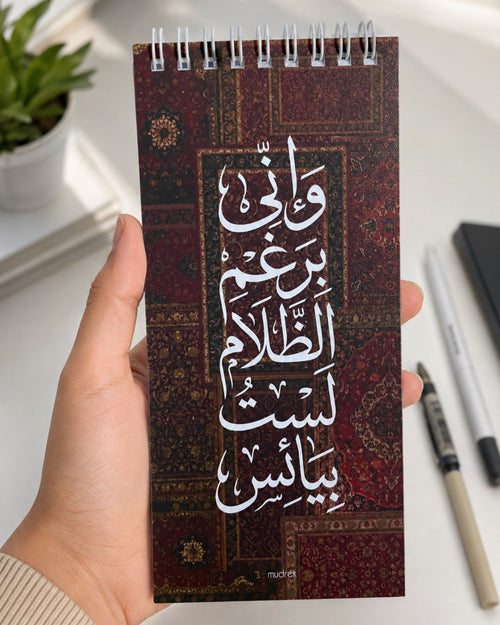 وَإنِّي
بَرَغْمِ
الظَّلَامِ
لَسْتُ
بِيَائِسِ
mudrek